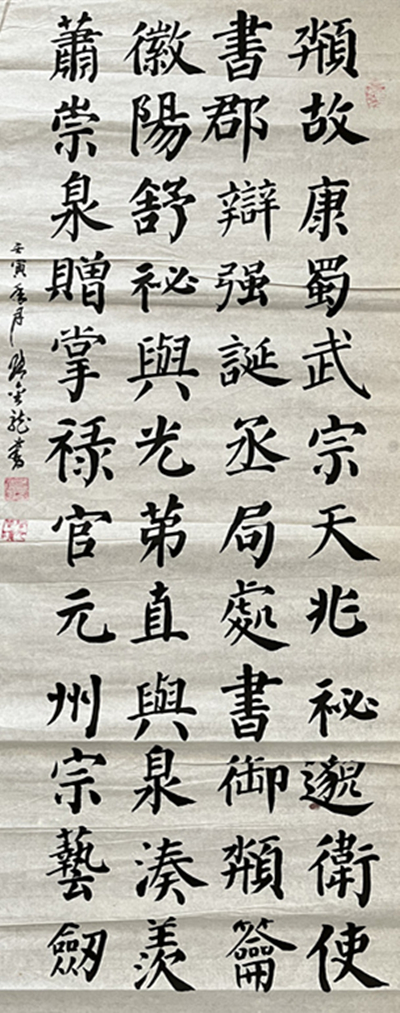 頫故康蜀武宗天兆祕邈衛使
書郡辯强誕丞局處書御頫籥
徽陽舒祕與光苐直與泉湊羨
蕭崇泉贈掌禄官元州宗藝劒
壬寅 月 金龍書